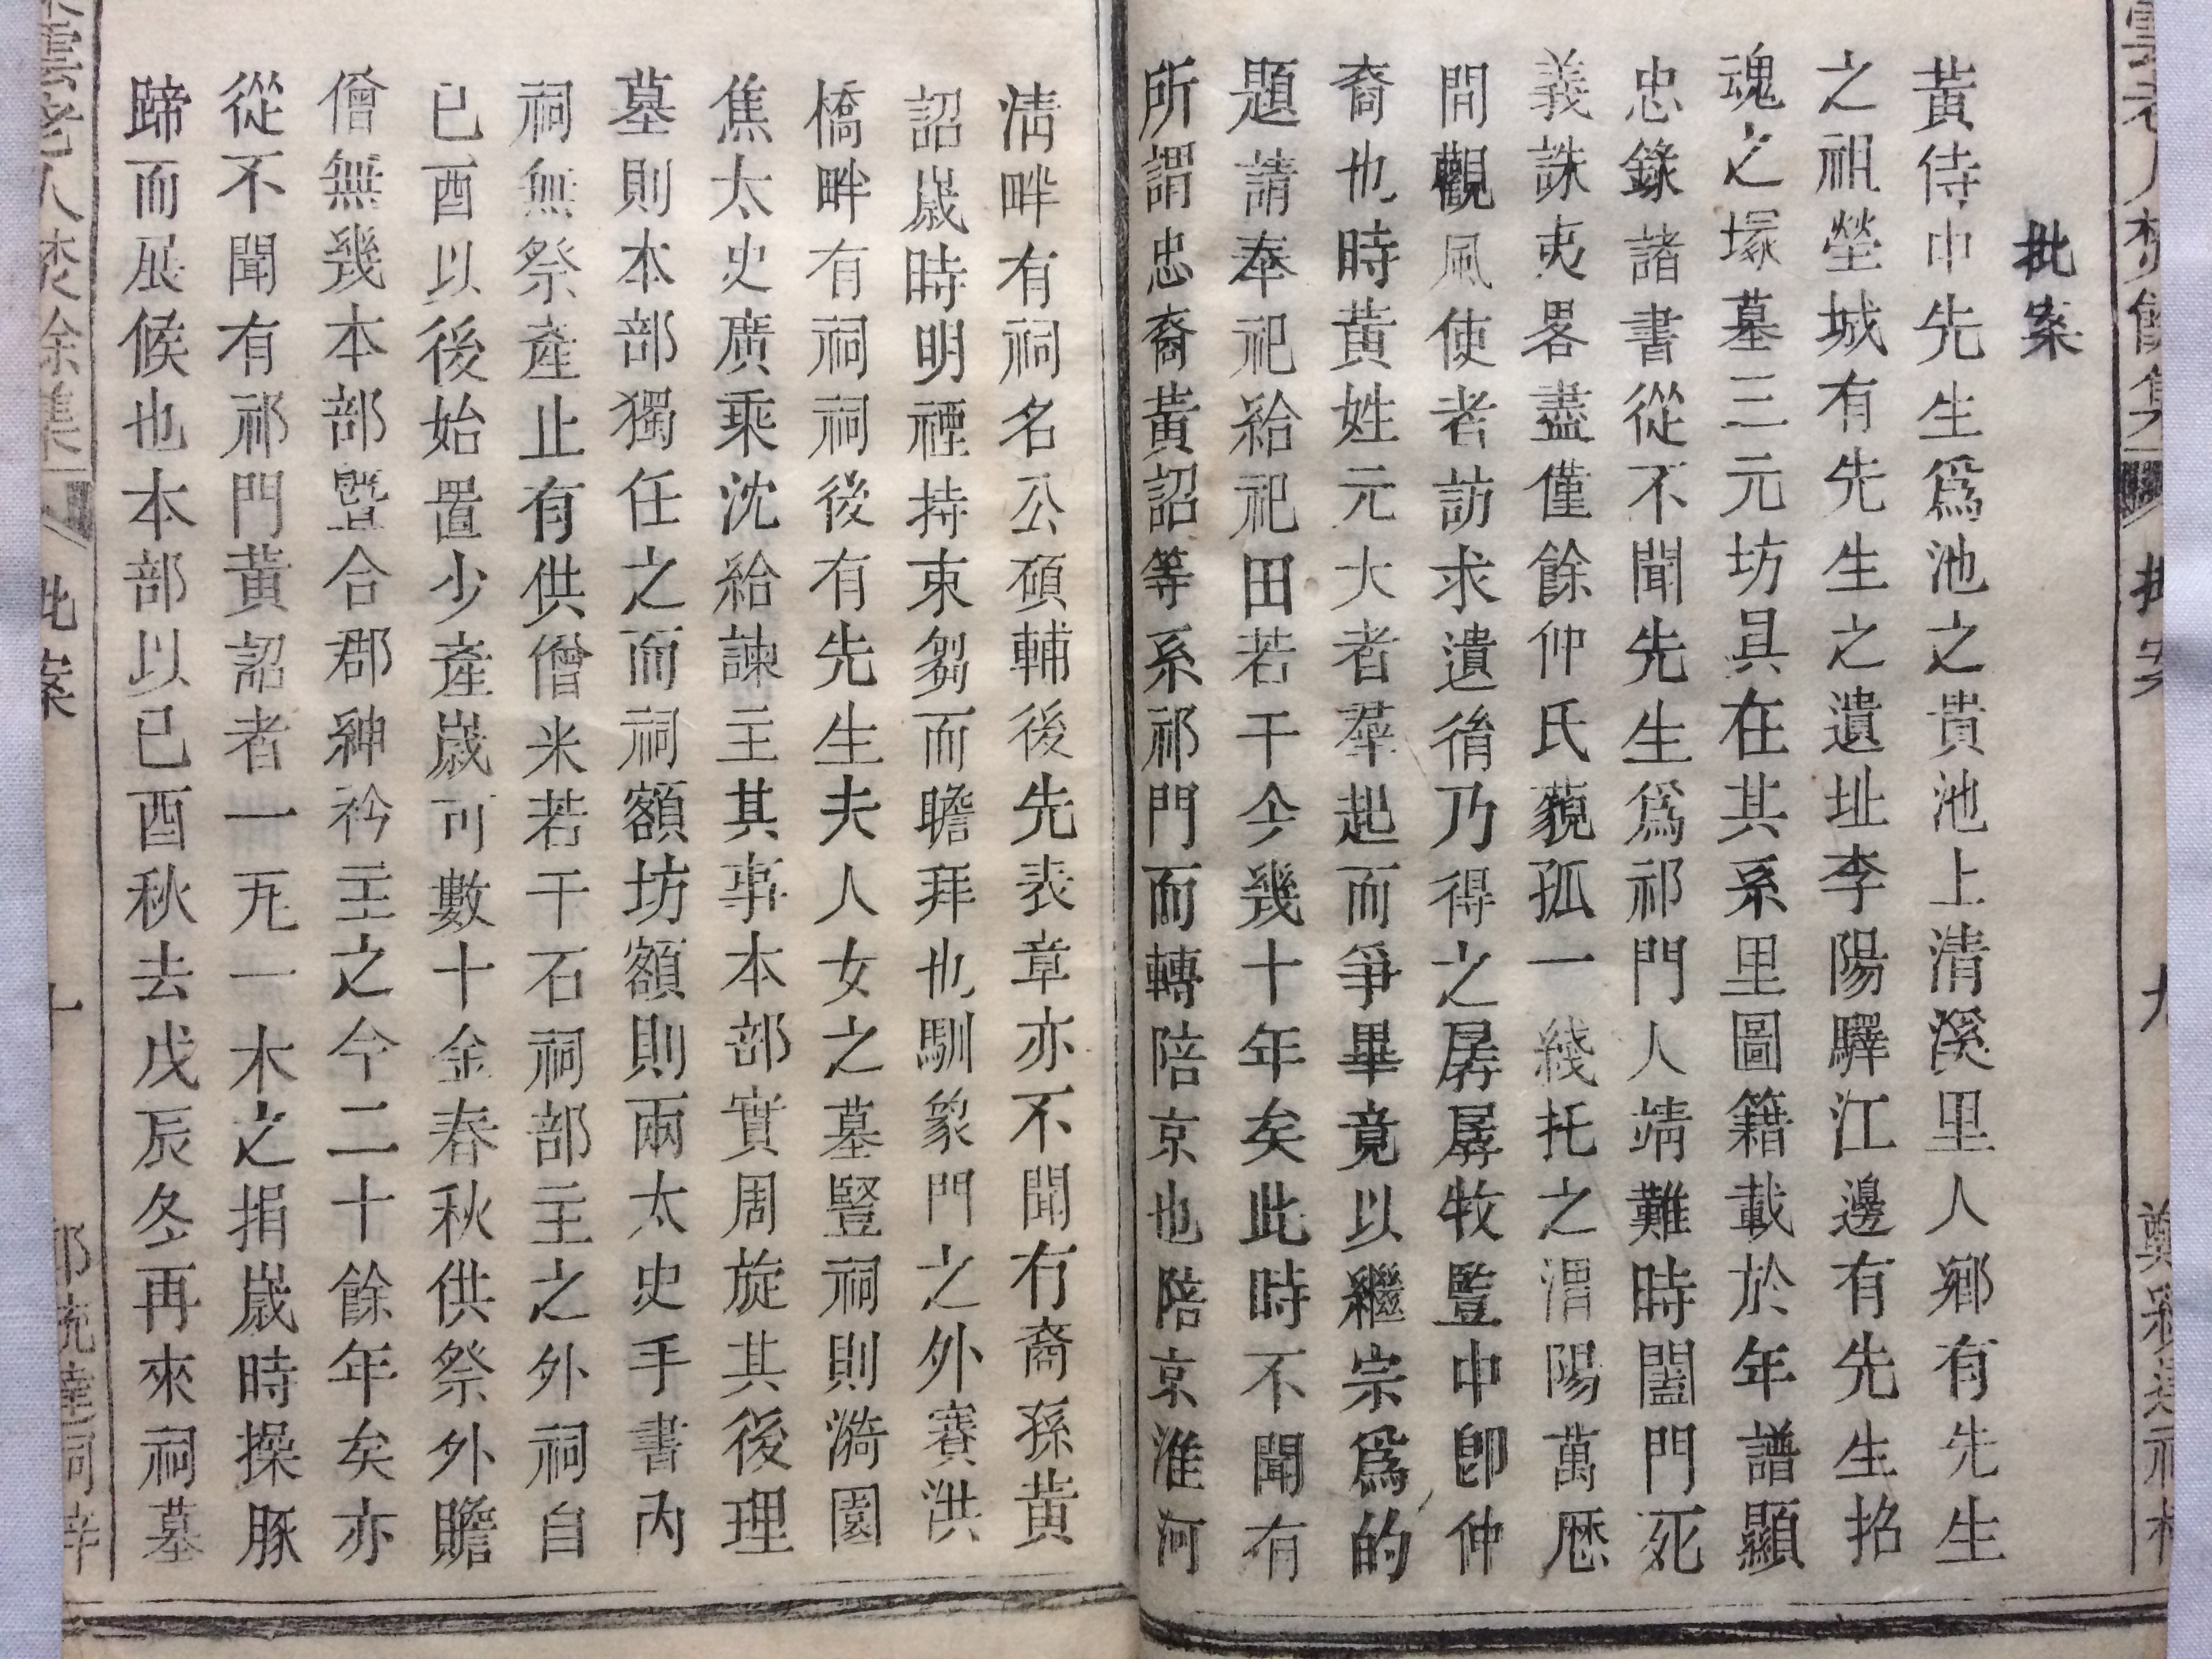 批案
黃侍中先生爲池之貴池上清溪里人鄉有先生
之祖塋城有先生之遺址李陽驛江邊有先生招
魂之塚墓三元坊具在其系里圖籍載於年譜顯
忠錄諸書從不聞先生爲祁門人靖難時闔門死
義誅夷畧盡僅餘仲氏藐孤一綫托之渭陽萬厯
間觀風使者訪求遺胄乃得之孱孱牧豎中卽仲
裔也時黃姓元大者羣起而爭畢竟以繼宗爲的
題請奉祀給祀田若干今幾十年矣此時不聞有
所謂忠裔黃詔等系祁門而轉陪京也陪京淮河
淸畔有祠名公碩輔後先表章亦不聞冇裔孫黃
詔歲時明禋持束芻而瞻拜也馴象門之外賽洪
橋畔有祠祠後有先生夫人女之墓豎祠則漪園
焦太史廣乘沈給諫主其事本部實周旋其後理
墓則本部獨任之而祠額坊額則兩太史手書內
祠無祭產止有供僧米若干石祠部主之外祠自
已酉以後始置少產歲可數十金春秋供祭外贍
僧無幾本部暨合郡紳衿主之今二十餘年矣亦
從不聞有祁門黃詔者一瓦一木之捐歲時操豚
蹄而展候也本部以已酉秋去戊辰冬再來祠墓
批案